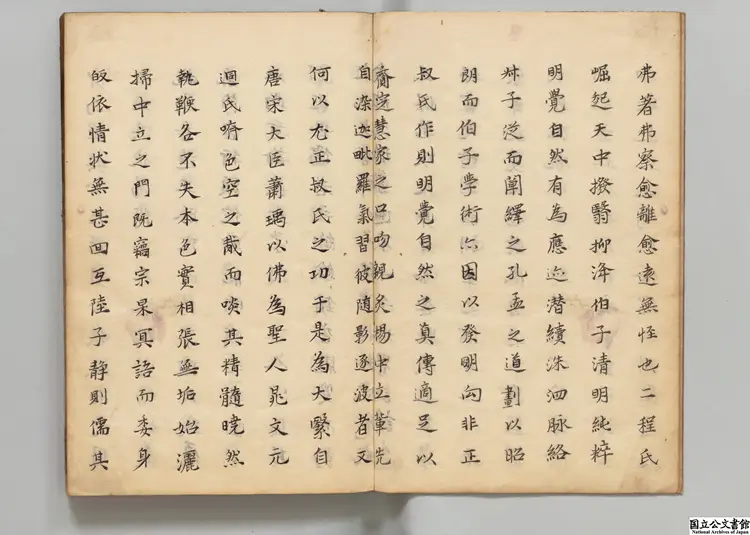 弗著弗察愈離愈遠無怪也二程氏
崛起天中撥翳抑洚伯子清明純粹
明覺自然有為應迹潜續洙泗脉絡
叔子従而闡繹之孔孟之道劃以昭
朗而伯子學術亦因以發明向非正
叔氏作則明覺自然之真傳適足以
齎定慧家之口吻親炙楊中立輩先
自染迦毗羅氣習彼随影逐波者又
何以尤正叔氏之功于是為大繄自
唐宋大臣蕭瑀以佛為聖人晁文元
迴氏嚌色空之胾而啖其精髓曉然
執鞭各不失本色實相張無垢始灑
掃中立之門既竊宗杲冥語而委身
皈依情狀無甚回互陸子静則儒其
国立公文書館
National Archives of Japan